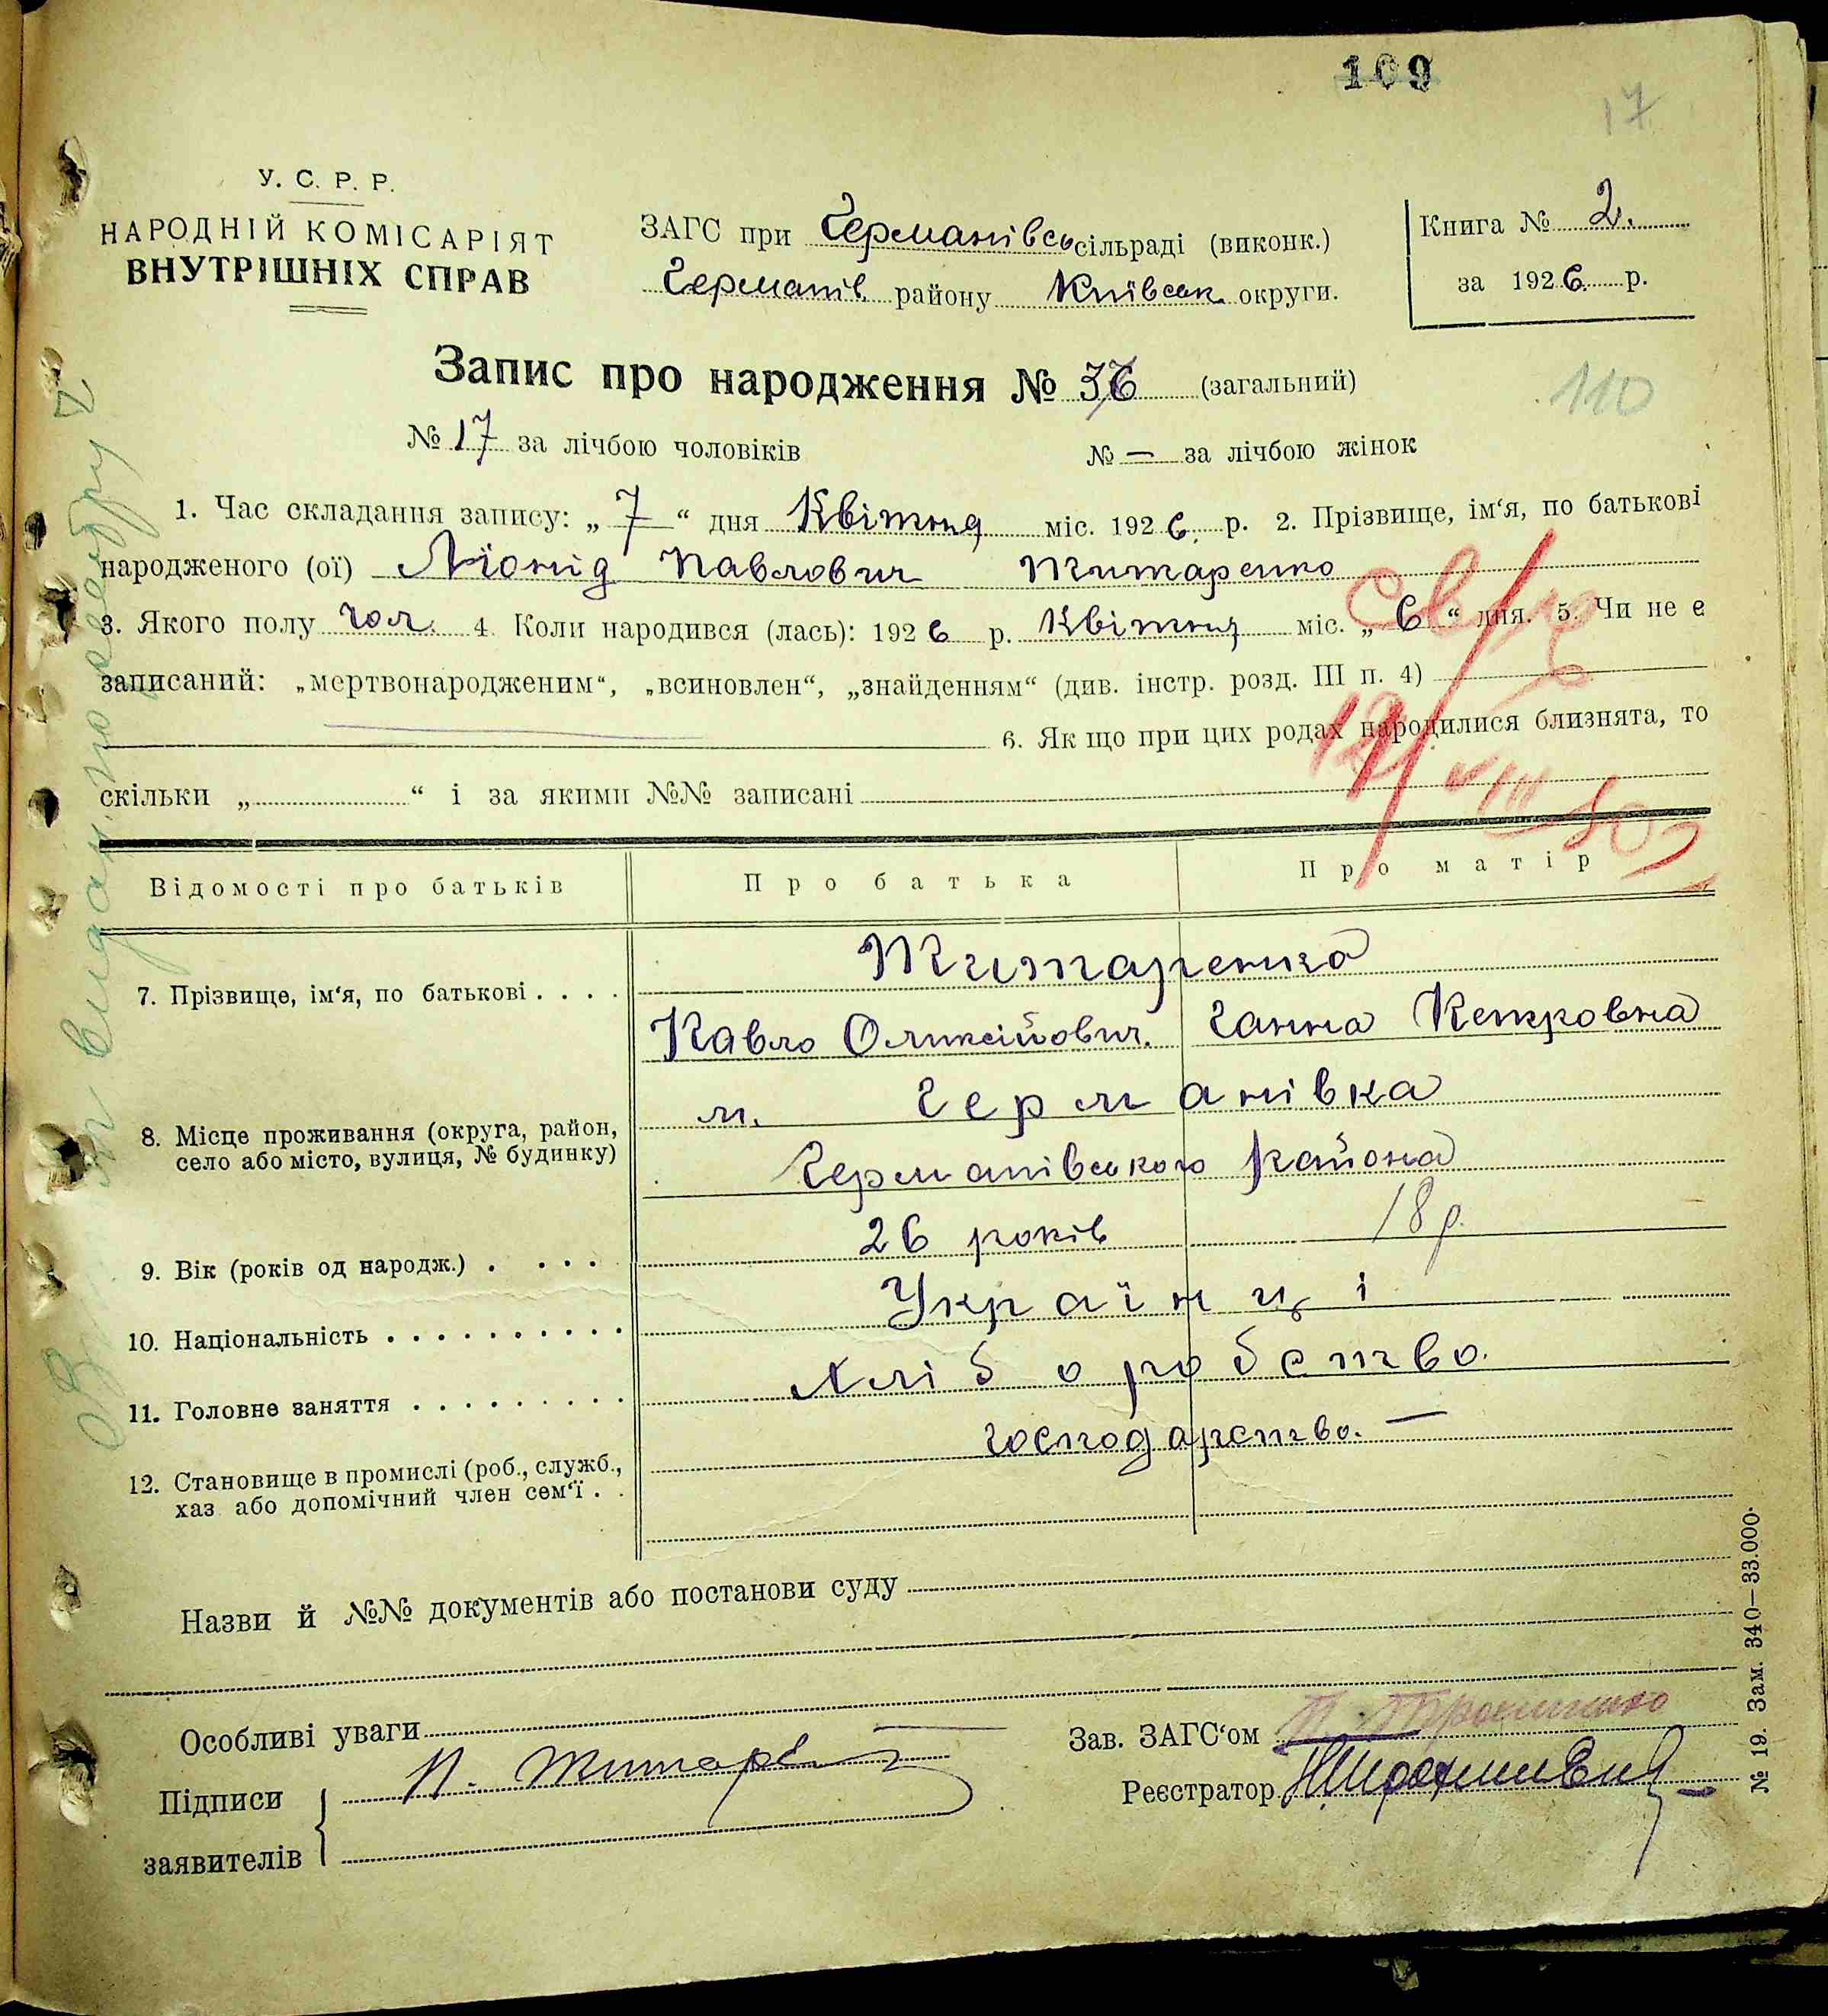 109
17
У. С. Р. Р.
НАРОДНІЙ КОМІСАРІЯТ
ВНУТРІШНІХ СПРАВ
ЗАГС при Германівсь сільраді (виконк.)
Германів. району Київськ. округи.
Книга № 2.
за 1926. р.
Запис про народження № 36 (загальний)
110
№ 17 за лічбою чоловіків № — за лічбою жінок
1. Час складання запису: „ 7 “ дня Квітня міс. 1926. р. 2. Прізвище, ім‘я, по батькові
народженого (ої) Ліонід Павлович Титаренко
3. Якого полу чол. 4. Коли народився (лась): 1926 р. Квітня міс. „ 6 “ дня. 5. Чи не є
записаний: „мертвонародженим“, „всиновлен“, „знайденням“ (див. інстр. розд. III п. 4)
6. Як що при цих родах народилися близнята, то
скільки „ “ і за якими №№ записані
VIII
Відомості про батьків Про батька Про матір
7. Прізвище, ім‘я, по батькові . . . . Титаренко
Павло Оликсійович. Ганна Петровна
8. Місце проживання (округа, район, село або місто, вулиця, № будинку) м. Германівка
Германівського района
9. Вік (років од народж.) . . . . 26 років 18 р.
10. Національність . . . . . . . . . . Українці
11. Головне заняття . . . . . . . . . Хліборобство.
12. Становище в промислі (роб., служб., хаз або допомічний член сем‘ї . . господарство. —
Назви й №№ документів або постанови суду
Особливі уваги
Зав. ЗАГС‘ом
Підписи П. Титаре
Реєстратор
заявителів
№ 19. Зам. 340—33.000.